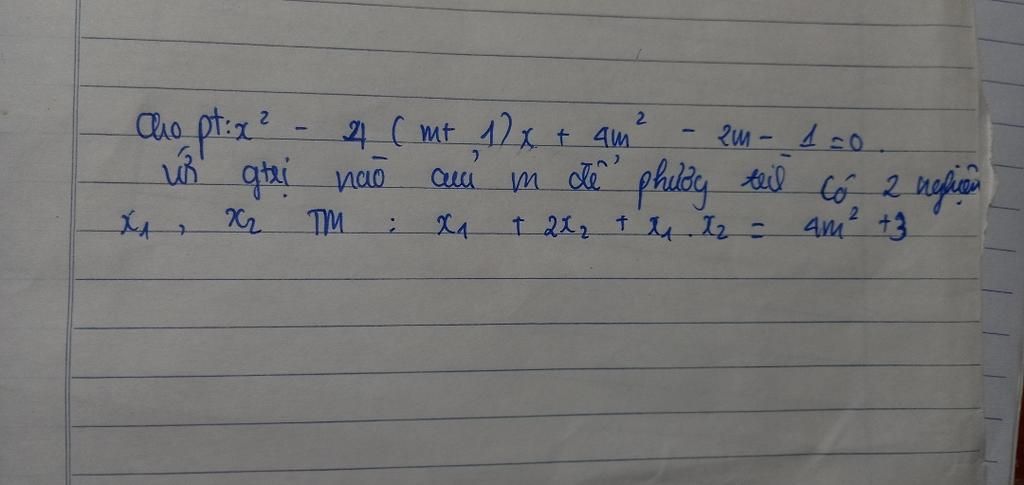 Cho pt: x² - 4(m+1)x + 4m² - 2m - 1 = 0.
Với gtrị nào của m để phương trình có 2 nghiệm
x₁, x₂ TM : x₁ + 2x₂ + x₁.x₂ = 4m² + 3